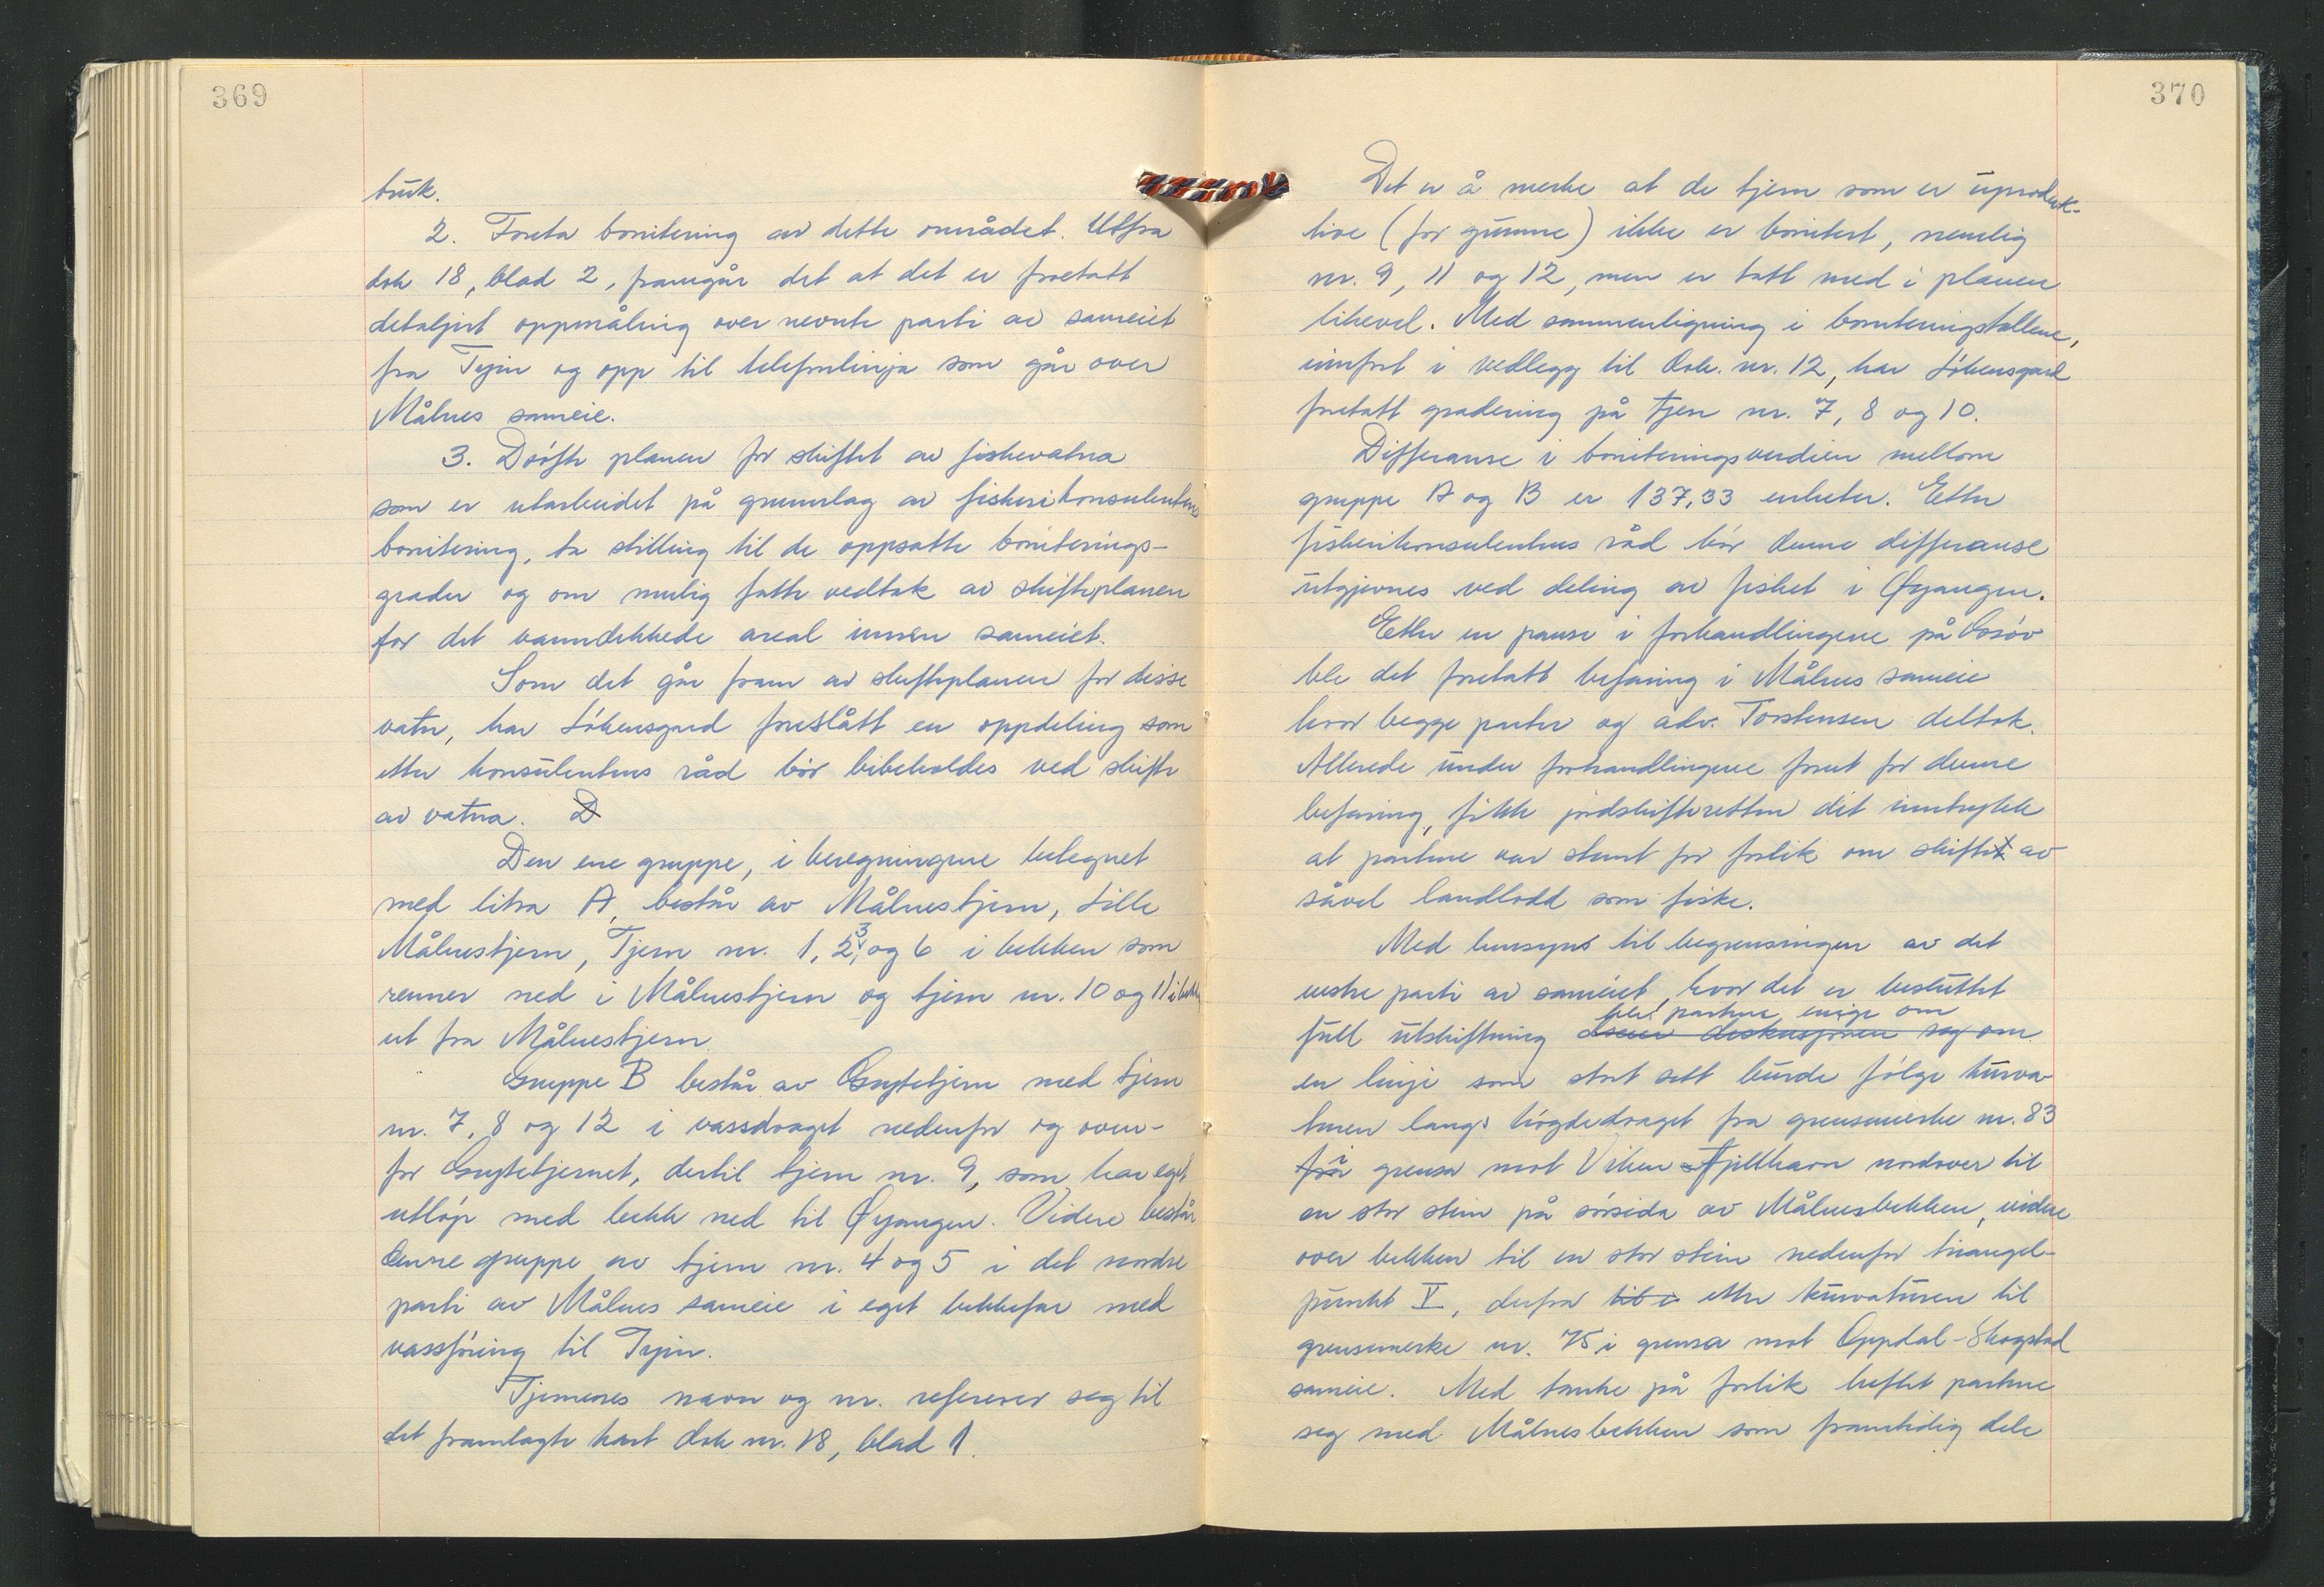 369
bruk.
2. Foreta bonitering av dette området. Utfra
dok 18, blad 2, framgår det at det er foretatt
detaljert oppmåling over nevnte parti av sameiet
fra Tyin og opp til telefonlinja som går over
Målnes sameie.
3. Drøfte planen for skiftet av fiskevatna
som er utarbeidet på grunnlag av fiskerikonsulentens
bonitering, ta stilling til de oppsatte boniterings-
grader og om mulig fatte vedtak av skifteplanen
for det vanndekkede areal innen sameiet.
Som det går fram av skifteplanen for disse
vatn, har Løkensgard foreslått en oppdeling som
etter konsulentens råd bør bibeholdes ved skifte
av vatna. D
Den ene gruppe, i beregningene betegnet
med litra A, består av Målnestjern, Lille
Målnestjern, Tjern nr. 1, 2, 3 og 6 i bekken som
renner ned i Målnestjern og tjern nr. 10 og 11 i bekk
ut fra Målnestjern.
Gruppe B består av Grytetjern med tjern
nr. 7, 8 og 12 i vassdraget nedenfor og oven-
for Grytetjernet, dertil tjern nr. 9, som har eget
utløp med bekk ned til Øyangen. Videre består
denne gruppe av tjern nr. 4 og 5 i det nordre
parti av Målnes sameie i eget bekkefar med
vassføring til Tyin.
Tjernenes navn og nr. refererer seg til
det framlagte kart dok nr. 18, blad 1.
370
Det er å merke at de tjern som er uproduk-
tive (for grunne) ikke er bonitert, nemlig
nr. 9, 11 og 12, men er tatt med i planen
likevel. Med sammenligning i boniteringstallene,
innført i vedlegg til dok. nr. 12, har Løkensgard
foretatt gradering på tjern nr. 7, 8 og 10.
Differanse i boniteringsverdien mellom
gruppe A og B er 137,33 enheter. Etter
fiskerikonsulentens råd bør denne differanse
utgjevnes ved deling av fisket i Øyangen.
Etter en pause i forhandlingene på Bosøv
ble det foretatt befaring i Målnes sameie
hvor begge parter og adv. Torstensen deltok.
Allerede under forhandlingene forut for denne
befaring, fikk jordskifteretten det inntrykk
at partene var stemt for forlik om skiftet av
såvel landlodd som fiske.
Med hensyns til begrensningen av det
vestre parti av sameiet, hvor det er besluttet
ble partene enige om
full utskiftning dreier diskusjonen seg om
en linje som stort sett burde følge kurva-
turen langs høgdedraget fra grensemerke nr. 83
i grensa mot Viken Fjellhavn nordover til
en stor stein på sørsida av Målnesbekken, videre
over bekken til en stor stein nedenfor triangel-
punkt V, derfra til i etter kurvaturen til
grensemerke nr. 75 i grensa mot Oppdal-Skogstad
sameie. Med tanke på forlik heftet partene
seg med Målnesbekken som framtidig dele